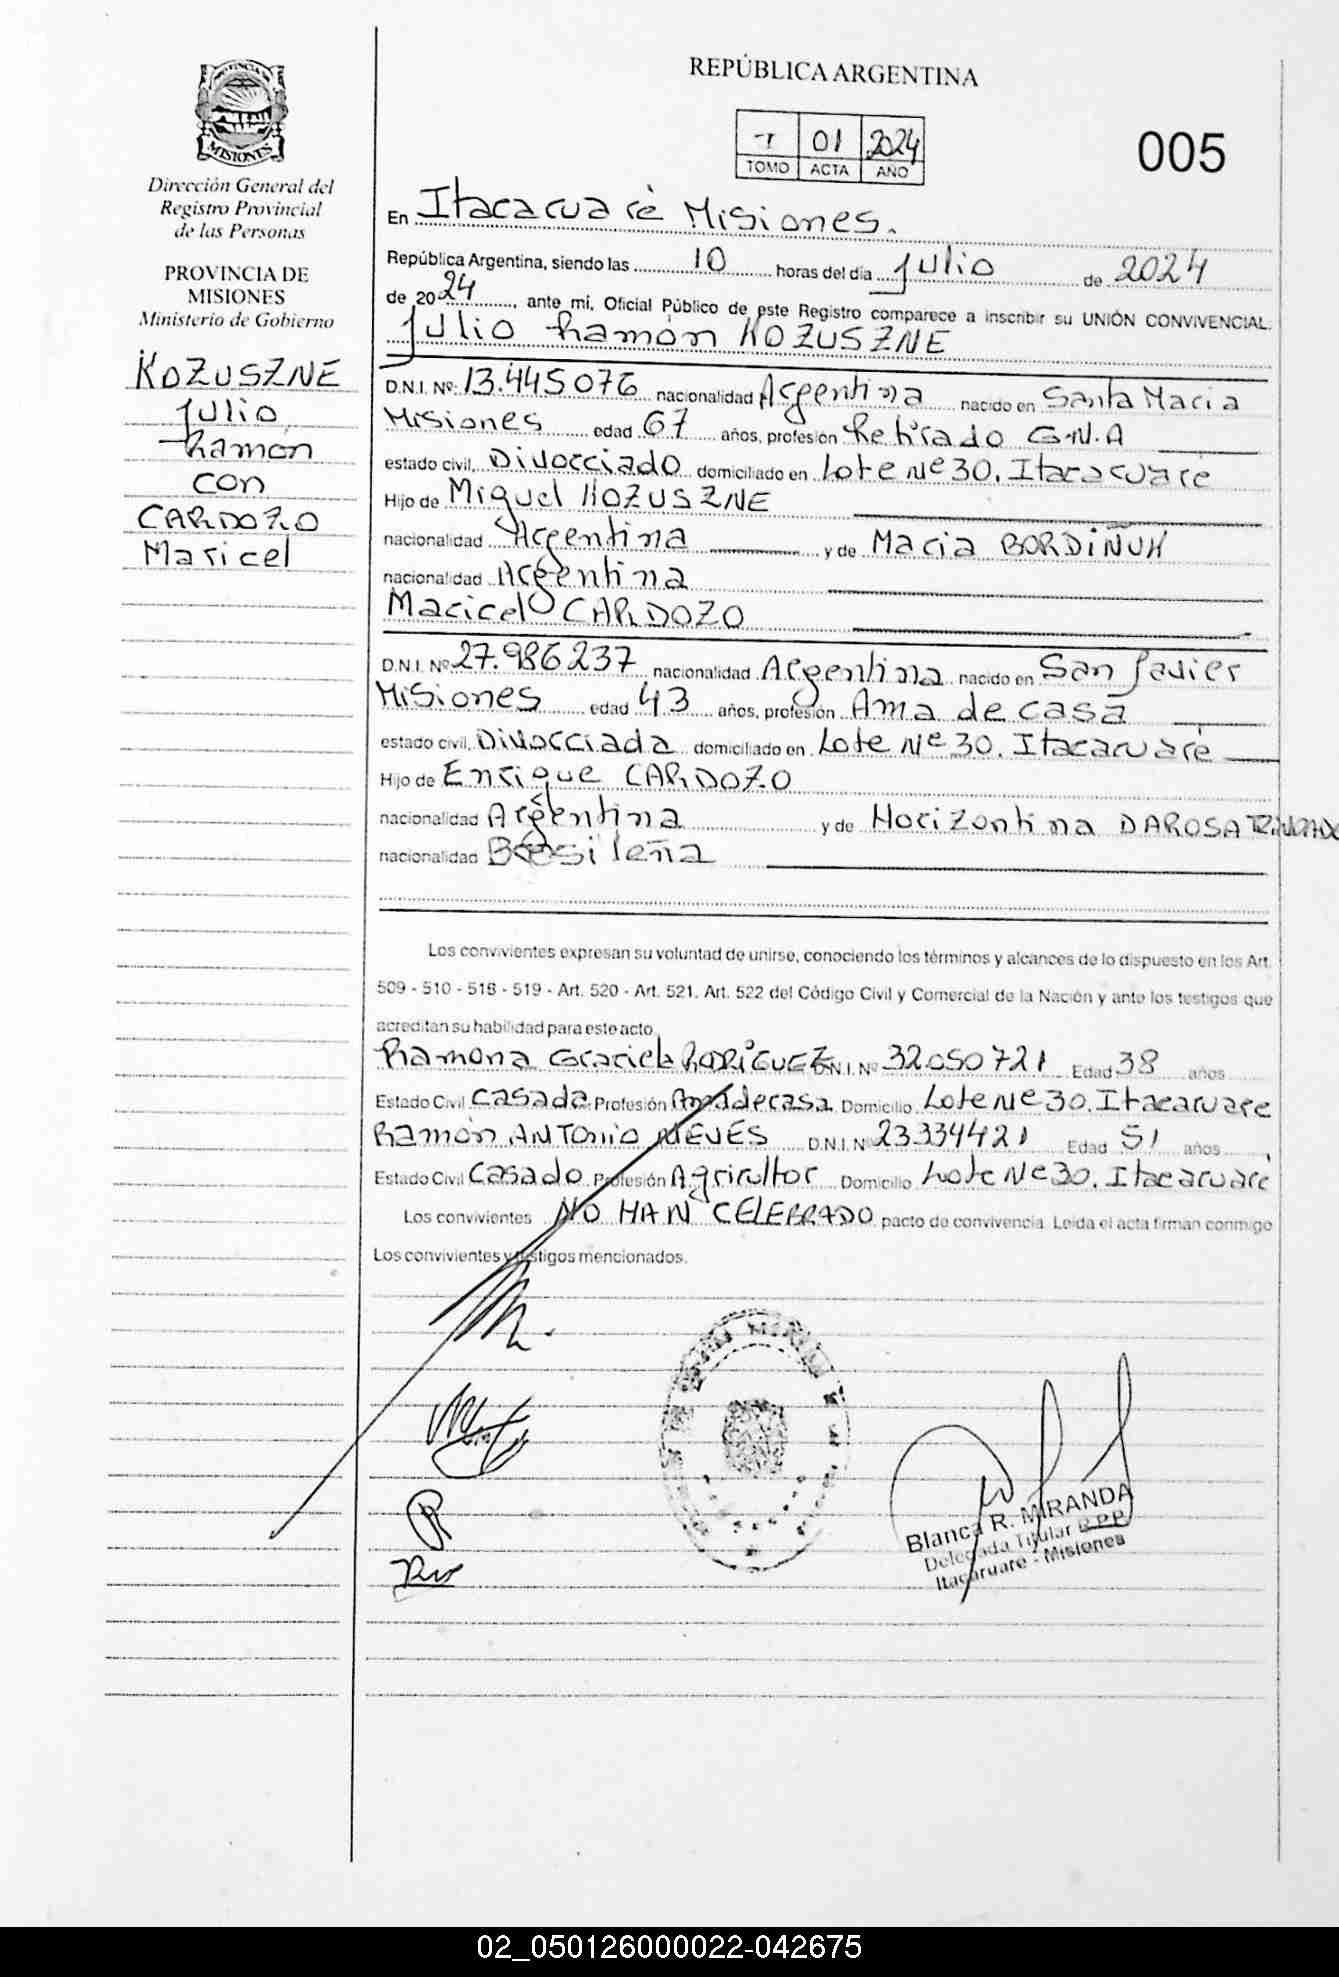 REPÚBLICA ARGENTINA
01 2024
TOMO ACTA AÑO
005
PROVINCIA DE
MISIONES
Dirección General del
Registro Provincial
de las Personas
PROVINCIA DE
MISIONES
Ministerio de Gobierno
KOZUSZNE
Julio
Ramón
con
CARDOZO
Maricel
En Itacaruaré Misiones.
República Argentina, siendo las 10 horas del día Julio de 2024
de 2024, ante mí, Oficial Público de este Registro comparece a inscribir su UNIÓN CONVIVENCIAL:
Julio Ramón KOZUSZNE
D.N.I. Nº: 13.445076 nacionalidad Argentina nacido en Santa Maria
Misiones edad 67 años, profesión Retirado G.N.A
estado civil, Divorciado domiciliado en Lote Nº 30. Itacaruaré
Hijo de Miguel KOZUSZNE
nacionalidad Argentina y de Maria BORDIÑUK
nacionalidad Argentina
Maricel CARDOZO
D.N.I. Nº 27.986237 nacionalidad Argentina nacido en San Javier
Misiones edad 43 años, profesión Ama de casa
estado civil, Divorciada domiciliado en Lote Nº 30. Itacaruaré
Hijo de Enrique CARDOZO
nacionalidad Argentina y de Horizontina DAROSA
nacionalidad Brasileña
Los convivientes expresan su voluntad de unirse, conociendo los términos y alcances de lo dispuesto en los Art.
509 - 510 - 518 - 519 - Art. 520 - Art. 521, Art. 522 del Código Civil y Comercial de la Nación y ante los testigos que
acreditan su habilidad para este acto
Ramona Graciela RODRIGUEZ D.N.I. Nº 32.050721 Edad 38 años
Estado Civil Casada Profesión Ama de casa Domicilio Lote Nº 30. Itacaruare
Ramón ANTONIO NEVES D.N.I. Nº 23.334421 Edad 51 años
Estado Civil Casado Profesión Agricultor Domicilio Lote Nº 30. Itacaruaré
Los convivientes NO HAN CELEBRADO pacto de convivencia. Leída el acta firman conmigo
Los convivientes y testigos mencionados.
Blanca R. MIRANDA
Delegada Titular R.P.P.
Itacaruare - Misiones
02_050126000022-042675